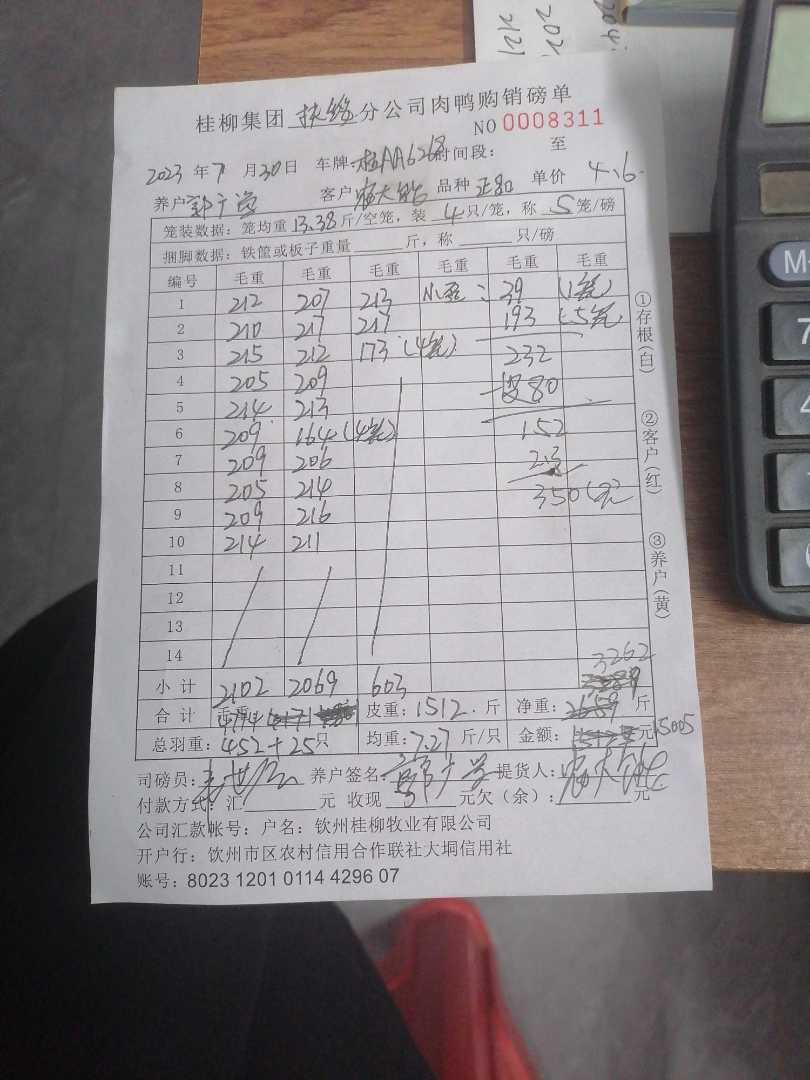 桂柳集团 扶绥 分公司肉鸭购销磅单
NO 0008311
2023 年 7 月 30 日 车牌 桂AA6268 时间段: 至
养户 客户 品种 正品 单价 4.6
笼装数据: 笼均重 13.38 斤/空笼, 装 4 只/笼, 称 5 笼/磅
捆脚数据: 铁筐或板子重量 斤, 称 只/磅
编号 毛重 毛重 毛重 毛重 毛重 毛重
1 212 207 213 39 (1笼)
2 210 217 217 193 (5笼)
3 215 212 173 (4笼) 232
4 205 209 80
5 214 213
6 209 164 (4笼) 152
7 209 206 2.3
8 205 214 350元
9 209 216
10 214 211
11
12
13
14
3262
小计 2102 2069 603
合计 毛重: 4774 皮重: 1512 斤 净重: 斤
总羽重: 452+25 只 均重: 7.27 斤/只 金额: 元 15005
司磅员: 养户签名 提货人:
付款方式: 汇 元 收现 元 欠(余): 元
公司汇款帐号: 户名: 钦州桂柳牧业有限公司
开户行: 钦州市区农村信用合作联社大垌信用社
账号: 8023 1201 0114 4296 07
①存根(白) ②客户(红) ③养户(黄)
204
202
2121
M
7
4